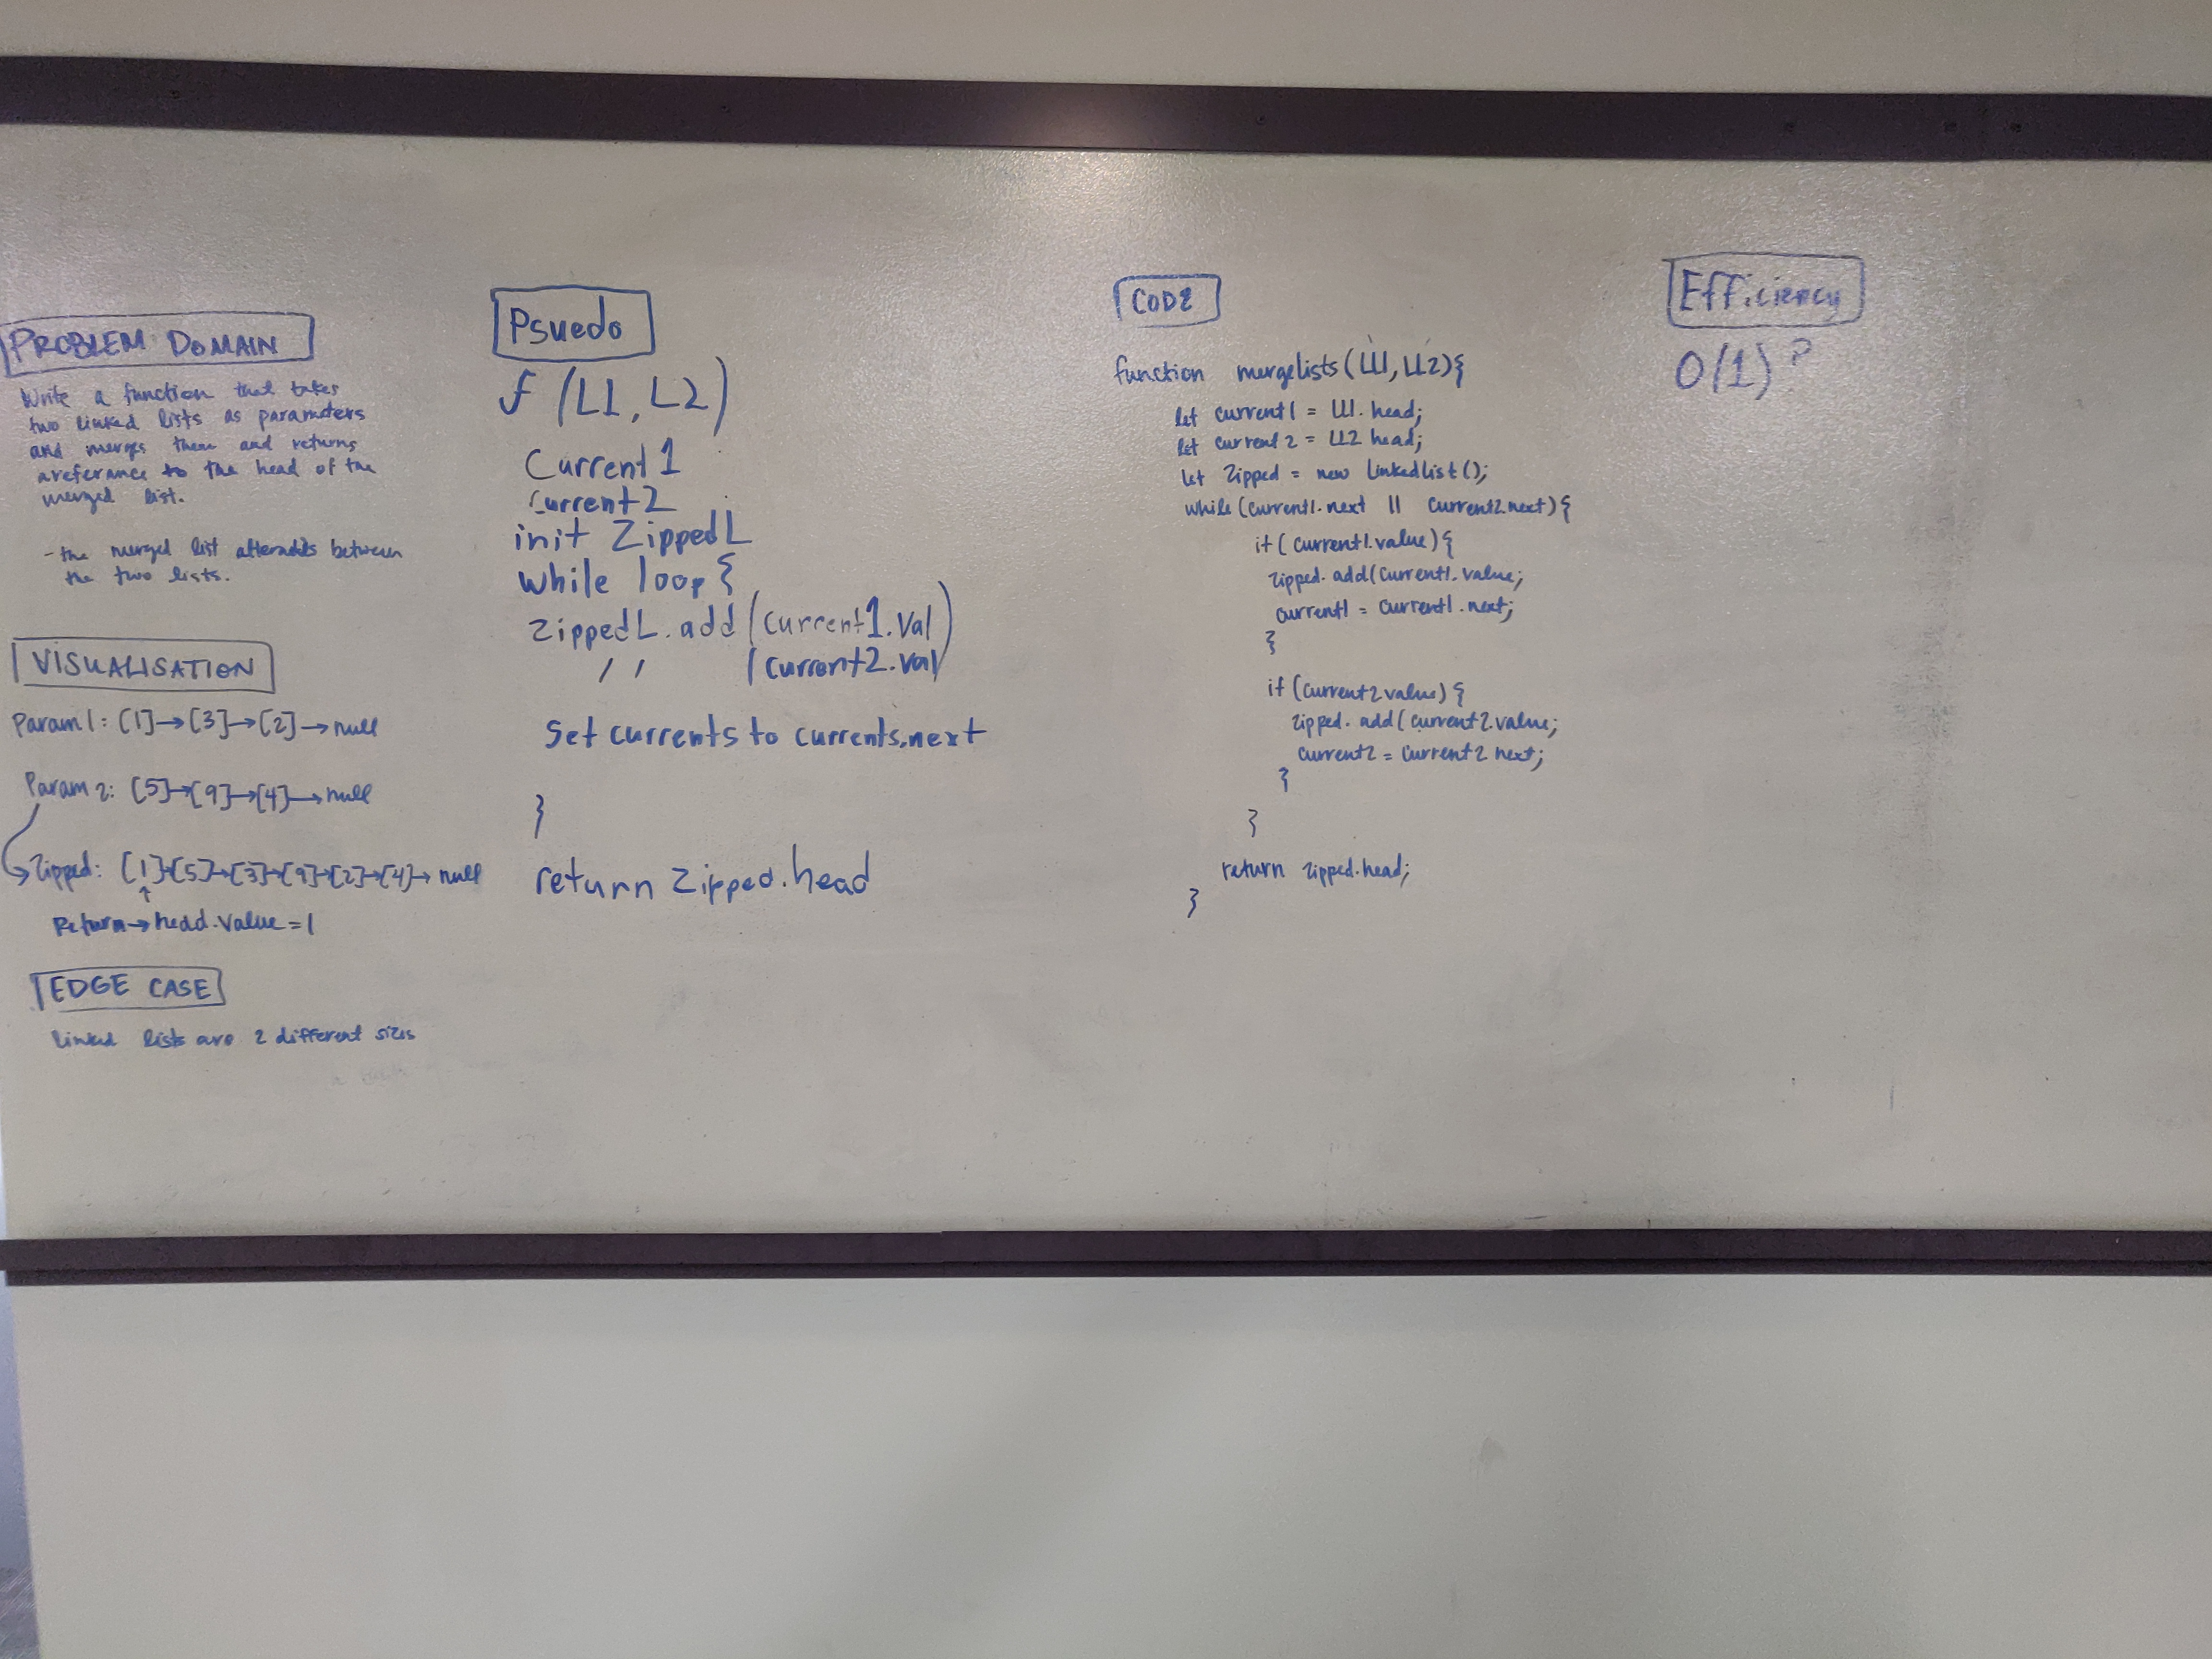 PROBLEM DOMAIN
Write a function that takes
two linked lists as parameters
and merges them and returns
a referance to the head of the
merged list.
- the merged list alternates between
the two lists.
VISUALISATION
Param 1: [1]→[3]→[2]→null
Param 2: [5]→[9]→[4]→null
Zipped: [1]→[5]→[3]→[9]→[2]→[4]→null
↑
Return→head.value=1
EDGE CASE
linked lists are 2 different sizes
Psuedo
f (L1, L2)
Current 1
Current 2
init ZippedL
while loop {
ZippedL.add (Current1.Val)
/ / (Current2.Val)
Set currents to currents.next
}
return Zipped.head
CODE
function mergelists (LL1, LL2){
let current1 = LL1.head;
let current2 = LL2 head;
let zipped = new LinkedList();
while (current1.next || current2.next){
if (current1.value){
zipped.add(current1.value;
current1 = current1.next;
}
if (current2 value){
zipped.add(current2.value;
current2 = current2 next;
}
}
return zipped.head;
}
Efficiency
O(1) ?